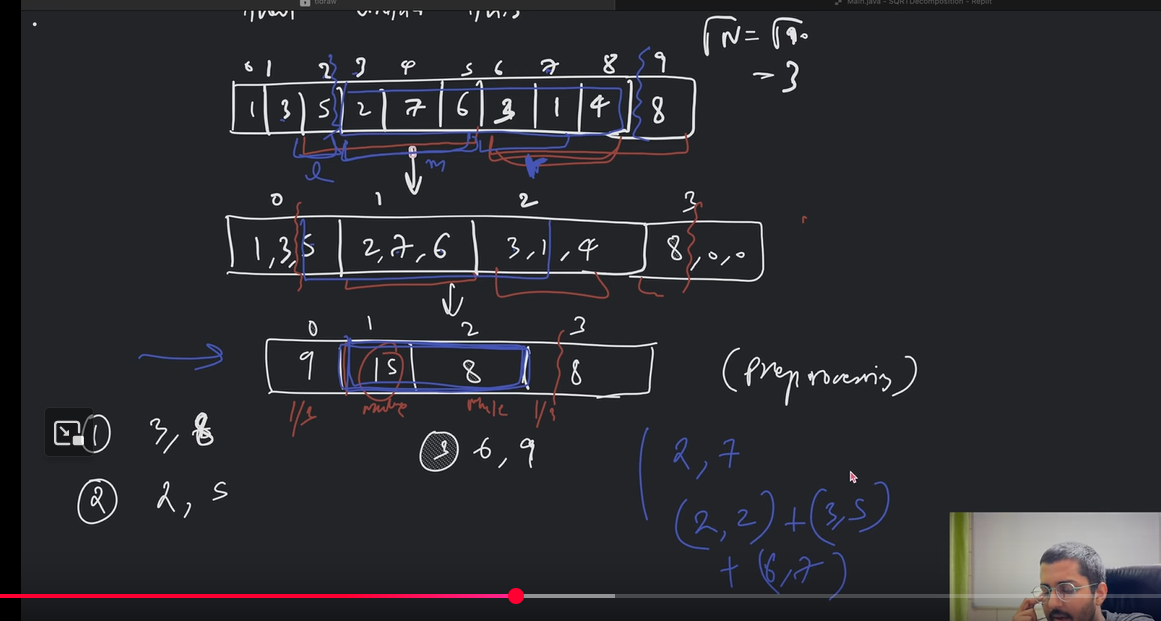 tldraw
Main.java - SQRTDecomposition - Replit
√N = √9.
→ 3
0 1 2 3 4 5 6 7 8 9
1 3 5 2 7 6 3 1 4 8
l m r
0 1 2 3
1,3,5 2,7,6 3,1,4 8,0,0
0 1 2 3
9 15 8 8
(Preprocessing)
1 3, 8
3 6, 9
2 2, 5
2, 7
(2,2) + (3,5)
+ (6,7)